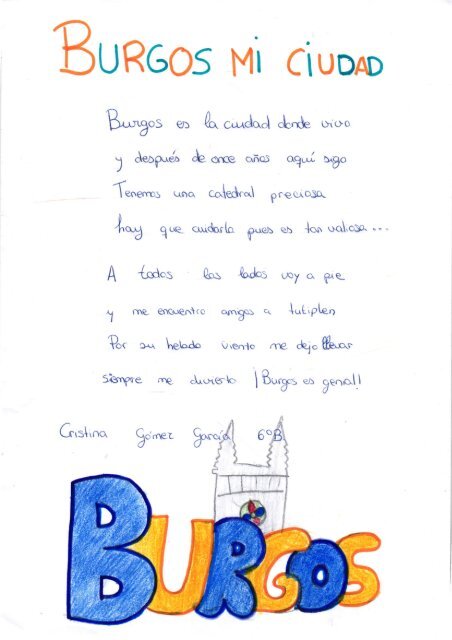 BURGOS MI CIUDAD
Burgos es la ciudad donde vivo
y después de once años aquí sigo
Tenemos una catedral preciosa
hay que cuidarla pues es tan valiosa...
A todos los lados voy a pie
y me encuentro amigos a tutiplen
Por su helado viento me dejo llevar
siempre me divierto ¡Burgos es genial!
Cristina Gómez García 6ºB
BURGOS